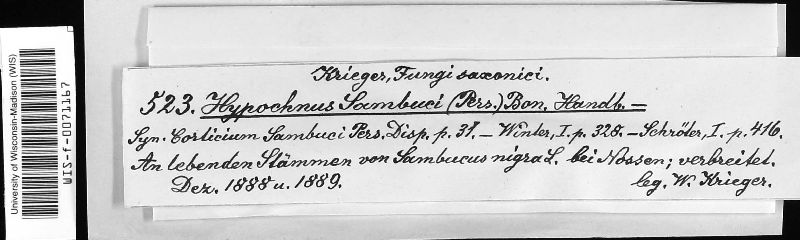 University of Wisconsin-Madison (WIS)
WIS-f-0071167
Krieger, Fungi saxonici.
523. Hypochnus Sambuci (Pers.) Bon. Handb. —
Syn. Corticium Sambuci Pers. Disp. p. 31. — Winter, I. p. 328. — Schröter, I. p. 416.
An lebenden Stämmen von Sambucus nigra L. bei Nossen; verbreitet.
Dez. 1888 u. 1889.
leg. W. Krieger.